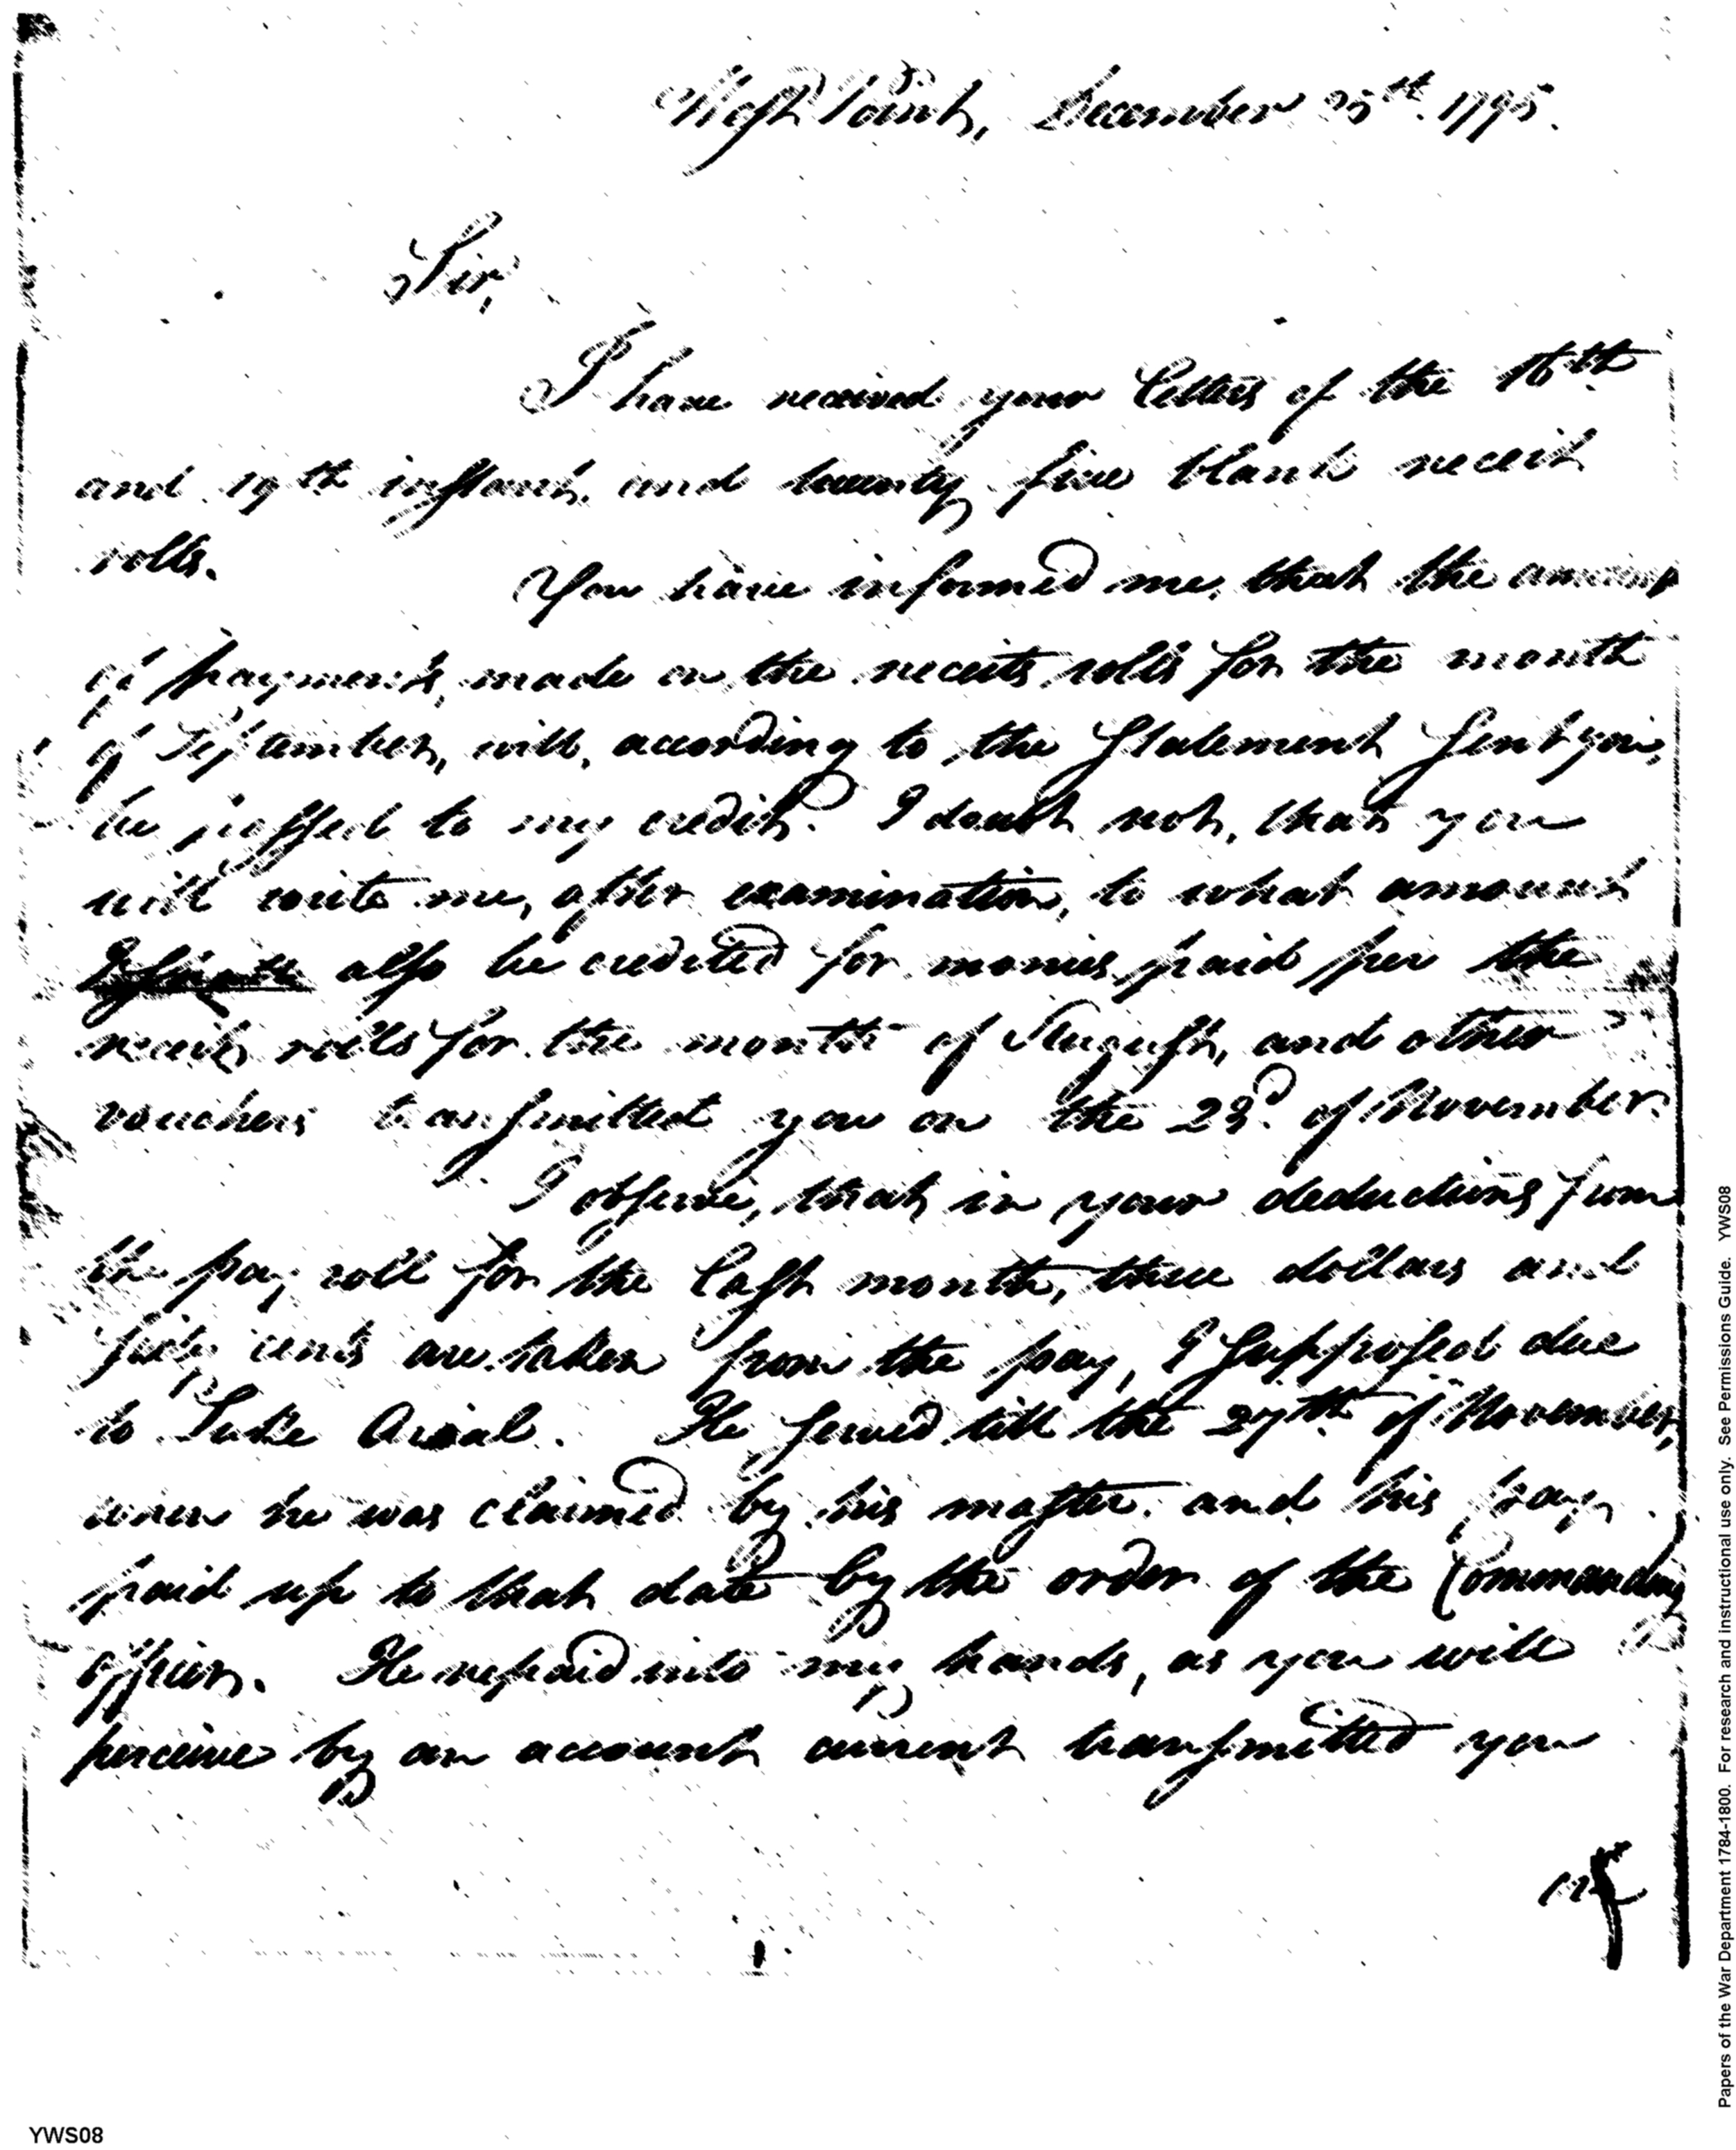 West Point, December 25th. 1795.
Sir,
I have received your letters of the 16th
and 19th instant, and twenty five blank receit
rolls.
You have informed me, that the amount
of payments, made on the receits rolls for the month
of September, will, according to the statement sent you,
be passed to my credit. I doubt not, that you
will write me, after examination, to what amount
also be credited for monies paid per the
receit rolls for the month of August, and other
vouchers transmitted you on the 23d. of November.
I observe, that in your deductions from
the pay roll for the last month, three dollars and
fifty cents are taken from the pay, I supposed due
to Luke. He served till the 27th of November,
when he was claimed by his master, and his pay
paid up to that date by the order of the Commanding
officer. He repaid into my hands, as you will
perceive by an account current transmitted you
YWS08
Papers of the War Department 1784-1800. For research and instructional use only. See Permissions Guide. YWS08